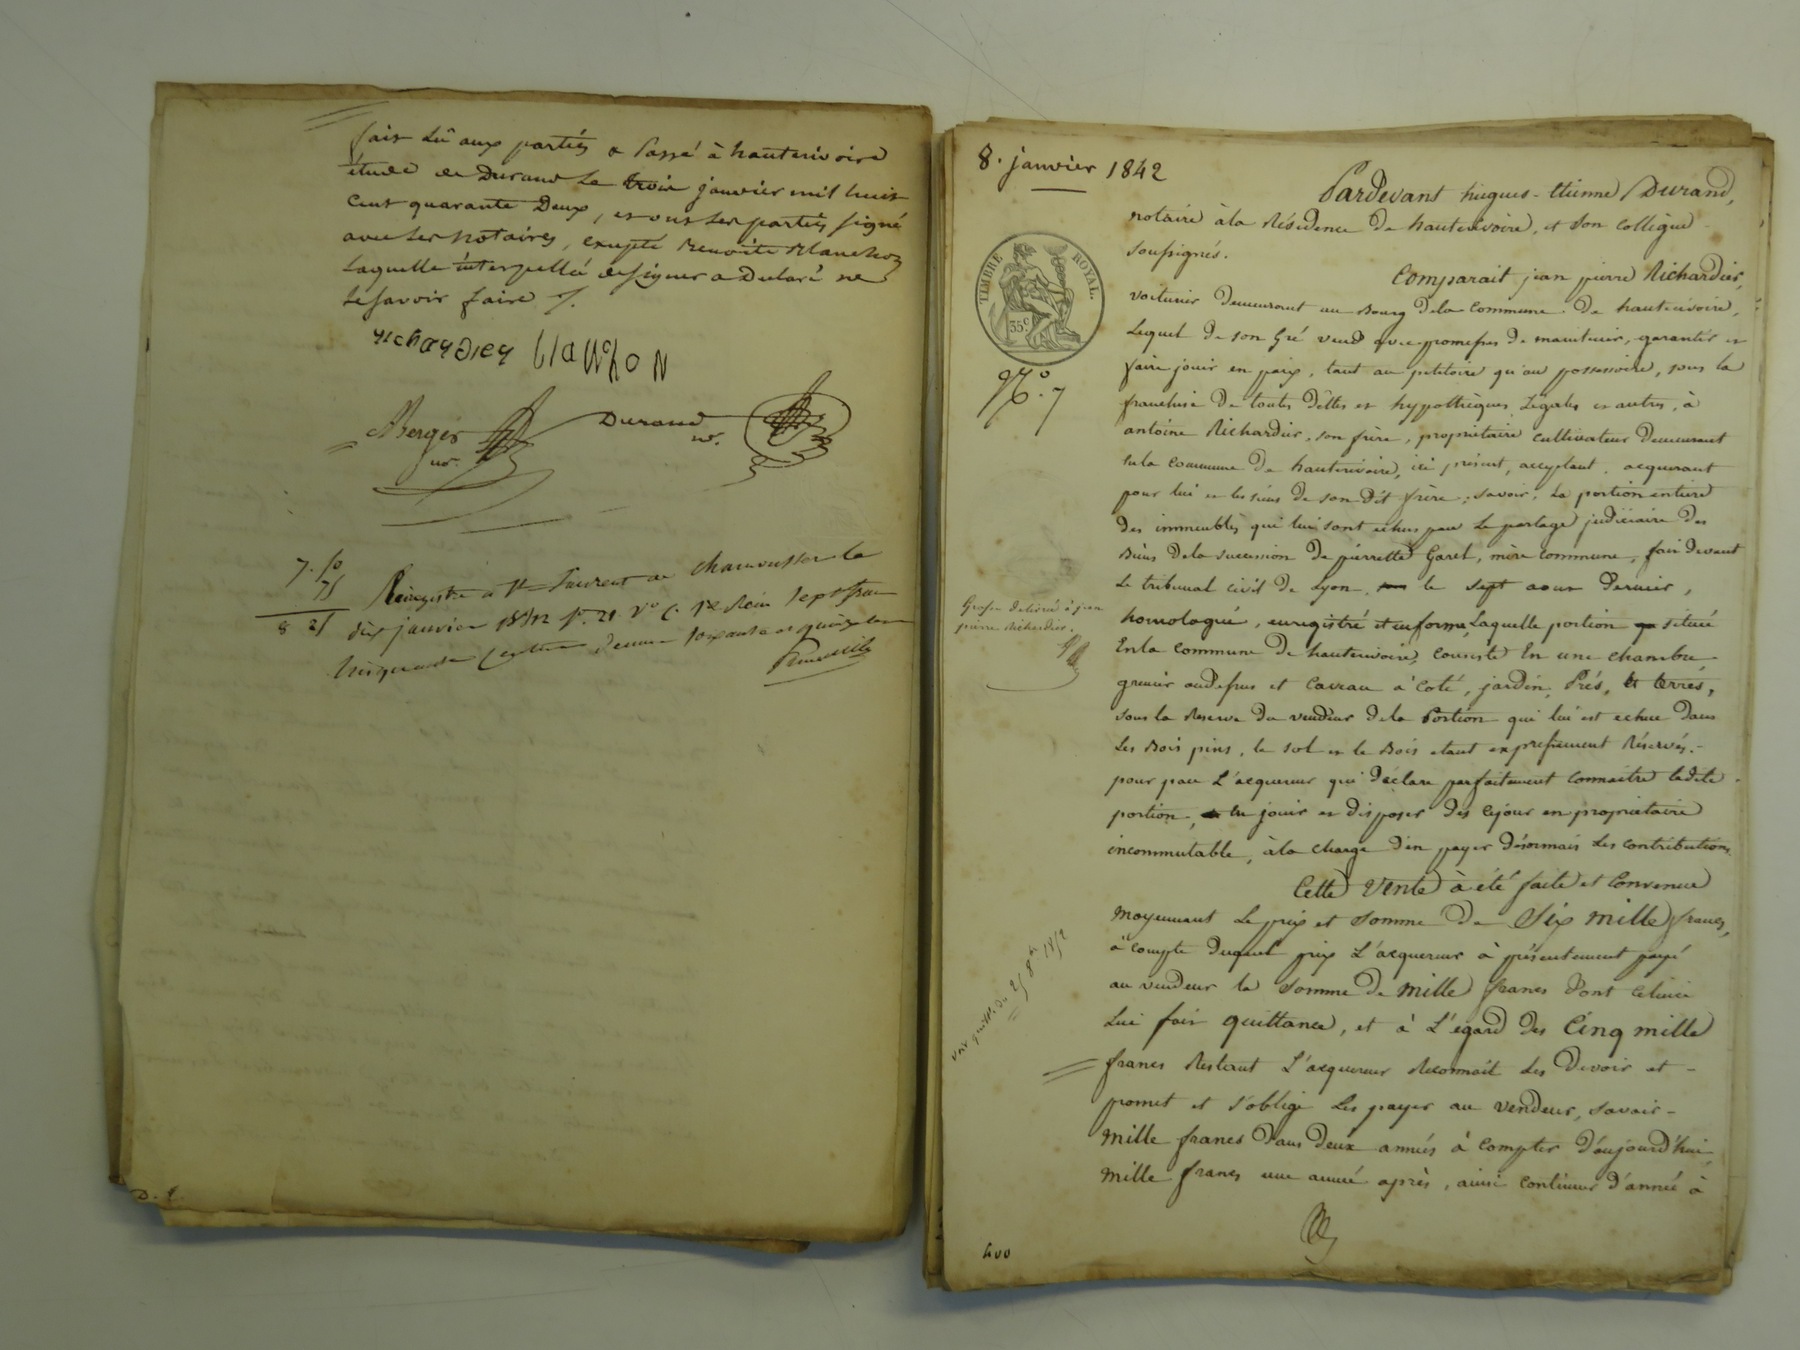 fait Lû aux parties & Passé à hauterivoire
étude de Durand Le trois janvier mil huit
Cent quarante Deux, et ont Les parties signé
avec Les Notaires, excepté Benoite Blanchon
Laquelle interpellée de signer a Declaré ne
le savoir faire /.
richardier
Berger
nre.
Durand
nre.
7. 50
75
8 25
Enregistré à St Laurent de Chamousset le
dix janvier 1842 fo. 21 Vo C. 1re Reçu sept francs
cinquante centimes Decime soixante et quinze centimes
8. janvier 1842
Pardevant hugues-Etienne Durand,
notaire à la Résidence De hauterivoire, et Son Collègue
soussignés.
TIMBRE ROYAL.
35c
No. 7
Comparait jean pierre Richardier,
voiturier Demeurant au Bourg De la Commune De hauterivoire,
Lequel de son Gré vend avec promesses De maintenir, garantir et
faire jouir en paix, tant au petitoire qu'au possessoire, sous la
franchise De toutes Dettes et hypothèques Légales et autres, à
antoine Richardier, son frère, propriétaire cultivateur Demeurant
en la Commune De hauterivoire, ici présent, acceptant, acquerant
pour lui et les siens De son Dit frère; savoir, La portion entière
Des immeubles qui lui sont echus par Le partage judiciaire Des
Biens De la succession De pierrette Garel, mère commune, fait Devant
Le tribunal civil De Lyon, le sept aout Dernier,
homologué, enregistré et en forme, Laquelle portion située
En la Commune De hauterivoire, Consiste En une chambre,
grenier au dessus et Caveau à coté, jardin, Prés, et terres,
sous la Reserve Du vendeur De la Portion qui lui est echue Dans
Les Bois pins, le sol et le Bois etant expressement Réservés.-
pour par L'acquereur qui Déclare parfaitement Connaitre ladite
portion, en jouir et disposer Dès cejour en propriétaire
incommutable, à la charge D'en payer Désormais Les contributions.
Grosse délivrée à jean
pierre Richardier.
Cette Vente à été faite et Convenue
moyennant Le prix et Somme De Six mille francs,
à Compte Duquel prix L'acquereur à présentement payé
au vendeur la Somme De mille francs Dont Celuici
Lui fait quittance, et à L'égard Des Cinq mille
francs Restant L'acquereur Reconnait Les Devoir et -
promet et s'oblige Les payer au vendeur, savoir -
mille francs Dans Deux années à Compter D'aujourd'hui,
mille francs une année après, ainsi Continuer D'année à
voir quitt. du 25 8bre 1842
400